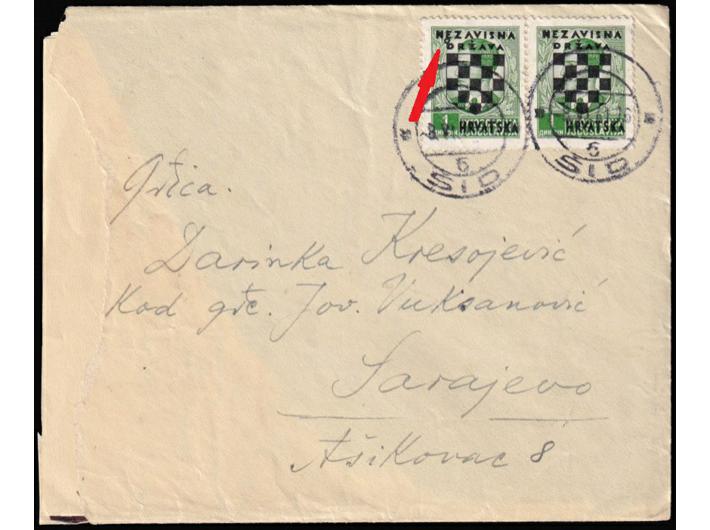 NEZAVISNA
DRŽAVA
HRVATSKA
1
NEZAVISNA
DRŽAVA
HRVATSKA
1
ДИН
6
ŠID
6
ŠID
Gđica.
Darinka Kresojević
Kod gđe. Jov. Vuksanović
Sarajevo
Ašikovac 8